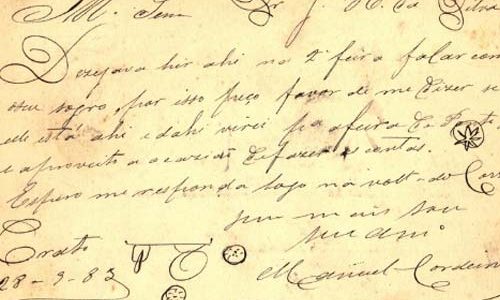 Il.mo Snr. Dr. J. R. da Silva
Dezejava hir ahi na 2ª feira falar com
seu sogro, por isso peço favor de me dizer se
elle está ahi e dahi virei p.a a feira da Ponte
e aproveito a ocazião de fazer as contas.
Espero me responda logo na volt- do Corr
sem mais sou
seu am.º
Crato
28-9-83
Manuel Cordeiro